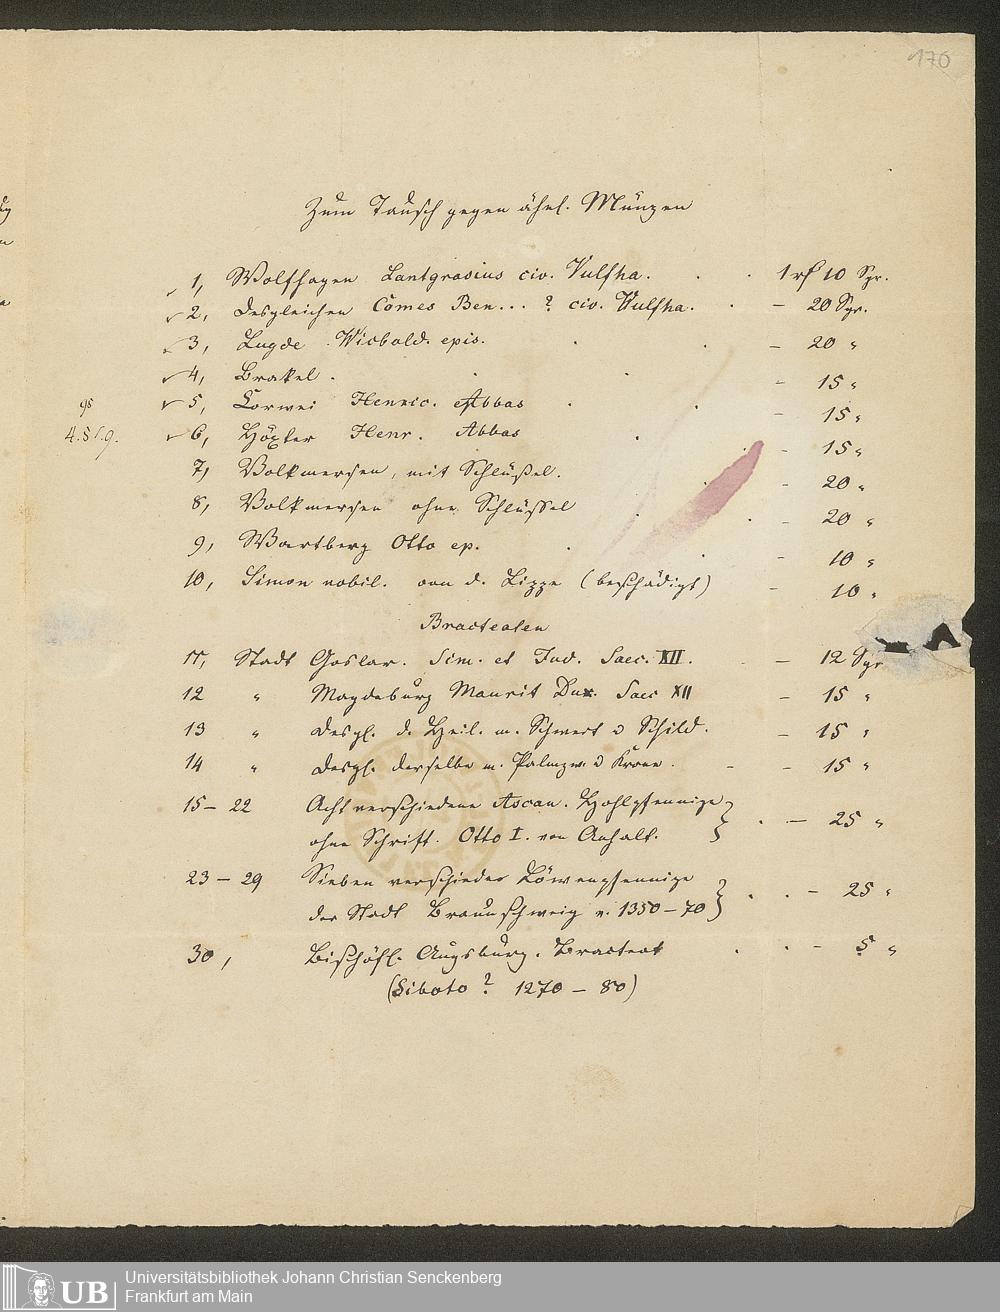 170
Zum Tausch gegen ähnl. Münzen
1, Wolfhagen Lantgravius civ. Vulfha. . . 1 rf 10 Sgr.
2, Desgleichen Comes Ben... ? civ. Wulfha. . — 20 Sgr.
3, Lugde Wicbold. epis. . . — 20 "
4, Brakel . . . — 15 "
5, Corvei Henric. Abbas . . — 15 "
6, Höxter Henr. Abbas . . — 15 "
7, Volkmersen, mit Schlüßel. . — 20 "
8, Volkmersen ohne Schlüssel . . — 20 "
9, Wartberg Otto ep. . . — 10 "
10, Simon nobil. von d. Lippe (beschädigt) — 10 "
4.5 f. 9.
Bracteaten
11, Stadt Goslar. Sim. et Jud. Saec. XII. — 12 Sgr
12 " Magdeburg Maurit Dux. Saec XII — 15 "
13 " Desgl. d. Heil. m. Schwert u Schild. — 15 "
14 " Desgl. derselbe m. Palmzw. u Krone. - — 15 "
15 — 22 Acht verschiedene Ascan. Hohlpfennige
ohne Schrift. Otto I. von Anhalt. } . — 25 "
23 — 29 Sieben verschiedene Löwenpfennige
der Stadt Braunschweig v. 1350 — 70 } . . — 25 "
30, Bischöfl. Augsburg. Bracteat . . — 5 "
(Siboto ? 1270 — 80)
UB
Universitätsbibliothek Johann Christian Senckenberg
Frankfurt am Main